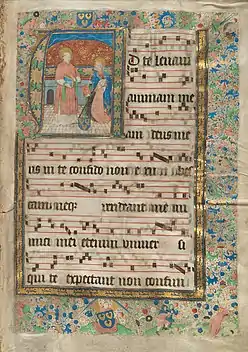 D te levavi
animam me
am deus me
us in te confido non erubes
cam neq irrideant me ini
mici mei etenim universi
qui te expectant non confun